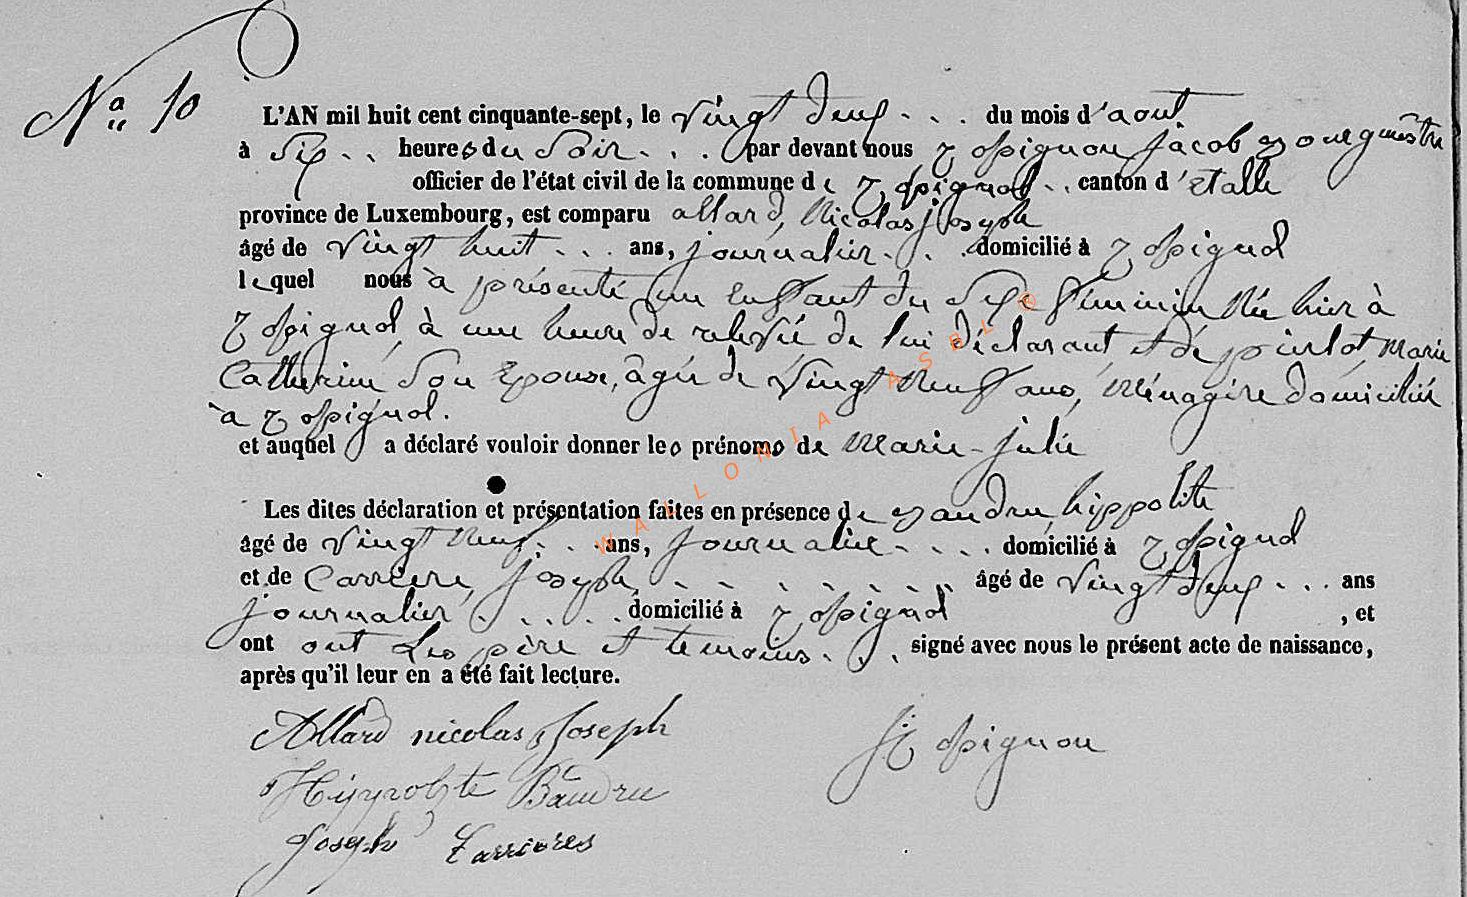 Nº 10
L'AN mil huit cent cinquante-sept, le vingt deux du mois d'aout
à Six heures du Soir par devant nous Rossignon jacob Bourguêstre
officier de l'état civil de la commune de Rossignol canton d'etalle
province de Luxembourg, est comparu allard, Nicolas joseph
âgé de vingt huit ans, journalier domicilié à Rossignol
lequel nous à présenté un enffant du Sexe féminin Née hier à
Rossignol, à une heure de relevée de lui déclarant et de pierlot, marie
Catherine Son Epouse, âgée de vingt neuff ans, Ménagère domiciliée
à Rossignol.
et auquel a déclaré vouloir donner les prénoms de Marie-julie
Les dites déclaration et présentation faites en présence de Baudru hippolite
âgé de vingt neuf ans, journalier domicilié à Rossignol
et de Carriere, joseph âgé de vingt deux ans
journalier domicilié à Rossignol , et
ont ont Les père et temoins signé avec nous le présent acte de naissance,
après qu'il leur en a été fait lecture.
Allard nicolas Joseph
J Rossignon
Hippolyte Baudru
Joseph Carrieres
WALLONIA ASBL ©